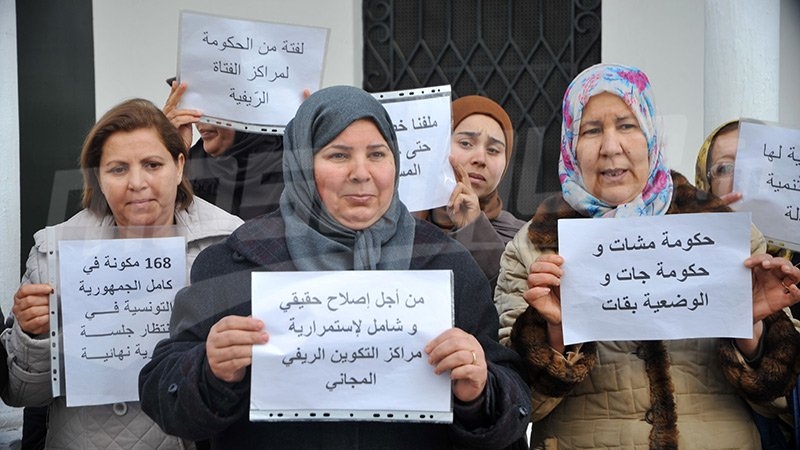 لفتة من الحكومة
لمراكز الفتاة
الرّيفية
ملفنا
حتى
168 مكونة في
كامل الجمهورية
التونسية في
جلسة
نهائية
من أجل إصلاح حقيقي
و شامل لإستمرارية
مراكز التكوين الريفي
المجاني
حكومة مشات و
حكومة جات و
الوضعية بقات
لها